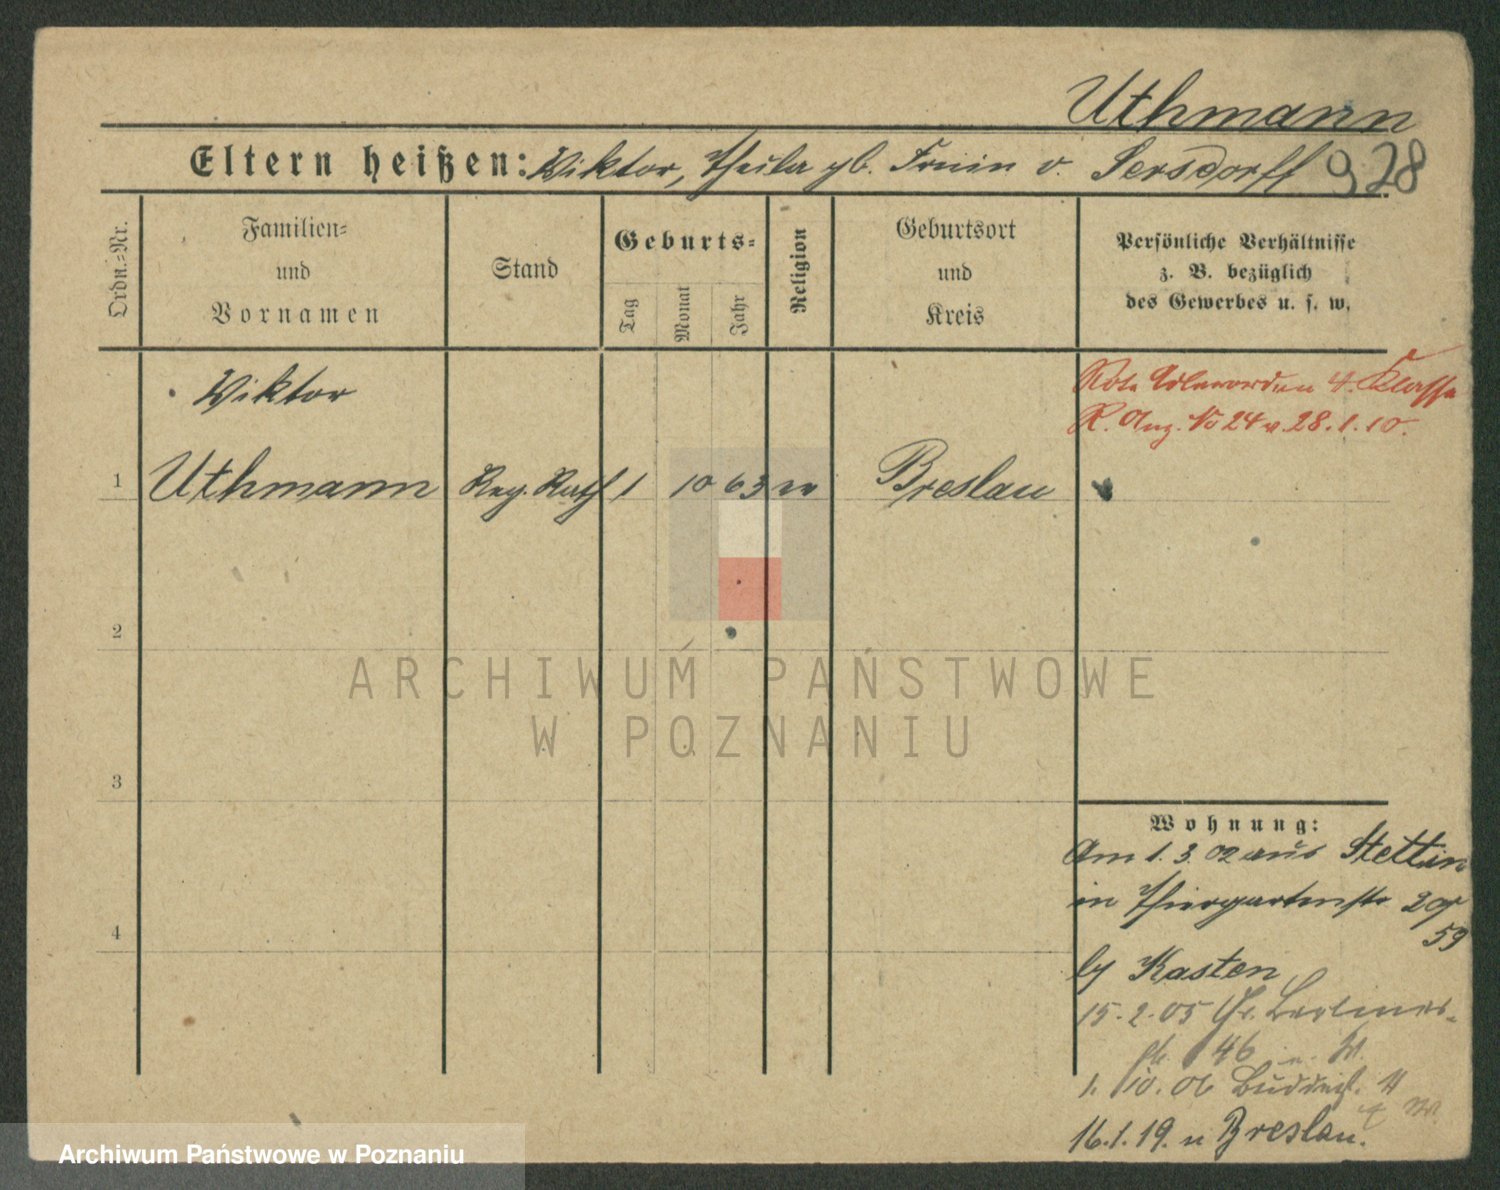 Uthmann
Eltern heißen: Viktor, Theila gb. Freiin v. Sersdorff 928
Ordn.-Nr.
Familien-
und
Vornamen
Stand
Geburts-
Tag
Monat
Jahr
Religion
Geburtsort
und
Kreis
Persönliche Verhältnisse
z. B. bezüglich
des Gewerbes u. s. w.
Viktor
Rote Adlerorden 4. Klasse
R. Anz. No 24 v. 28.1.10.
1 Uthmann Reg. Rath 1 10 63 ev Breslau
2
3
4
Wohnung:
Am 1. 3. 02 aus Stettin
in Thiergartenstr
59
by Kasten
15.2.05 Gr. Berliner-
46
1. 10. 06
16.1.19. n Breslau.
ARCHIWUM PAŃSTWOWE
W POZNANIU
Archiwum Państwowe w Poznaniu